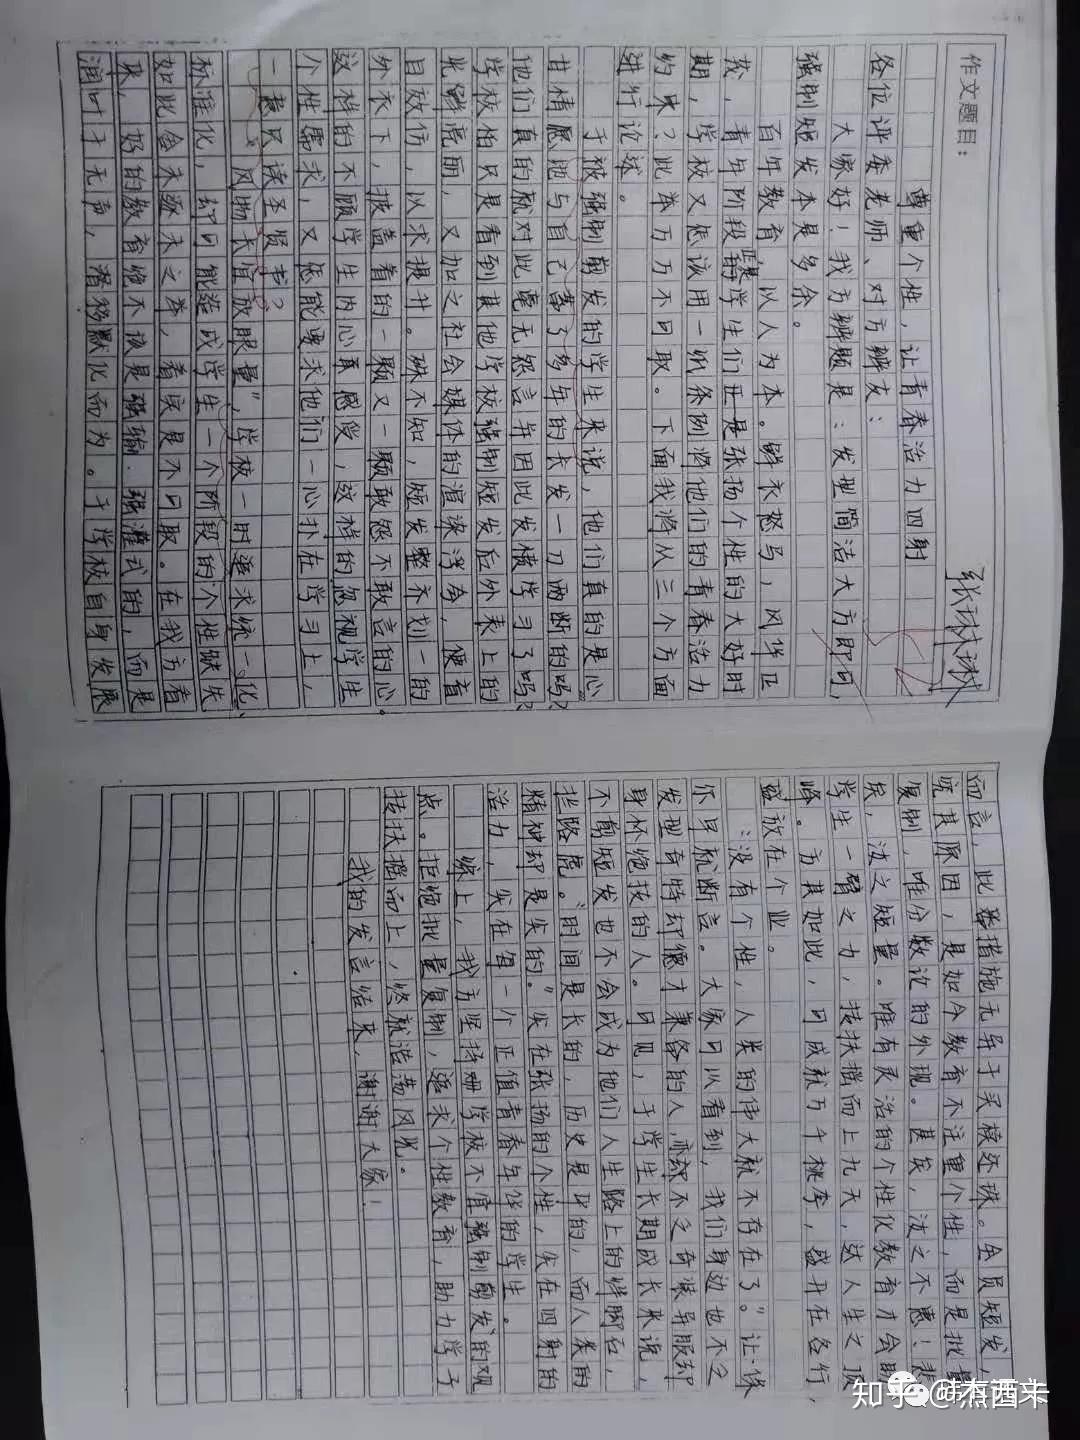 作文题目：
张琳琳
尊重个性，让青春活力四射
各位评委老师、对方辩友：
大家好！我方辩题是：发型简洁大方即可，
强制短发本是多余。
百年教育，以人为本。鲜衣怒马，风华正
茂，青年阶段学生们正是张扬个性的大好时
期，学校又怎该用一纸条例将他们的青春活力
约束？此举万万不可取。下面我将从三个方面
进行论述。
于被强制剪发的学生来说，他们真的是心
甘情愿地与自己蓄了多年的长发一刀两断的吗？
他们真的就对此毫无怨言并因此发愤学习了吗？
学校怕只是看到其他学校强制短发后外表上的
光鲜亮丽，又加之社会媒体的渲染浮夸，便盲
目效仿，以求提升。殊不知，短发整齐划一的
外衣下，掩盖着的一颗又一颗敢怨不敢言的心。
这样的不顾学生内心真感受，这样的忽视学生
个性需求，又怎能要求他们一心扑在学习上，
一意只读圣贤书？
“风物长宜放眼量”，学校一时追求统一化、
标准化，却可能造成学生一个阶段的个性缺失
如此舍本逐末之举，着实是不可取。在我方看
来，好的教育绝不该是强输、强灌式的，而是
润叶于无声，潜移默化而为。于学校自身发展
而言，此番措施无异于买椟还珠。全员短发，
究其原因，是如今教育不注重个性，而是批量
复制，唯分数论的外现。甚矣，汝之不惠！悲
矣，汝之短量。唯有灵活的个性化教育才会助
学生一臂之力，扶扶摇而上九天，达人生之顶
峰。方其如此，可成就万千桃李，盛开在各行，
盛放在个业。
“没有个性，人类的伟大就不存在了。”让·保
尔早就断言。大家可以看到，我们身边也不乏
发型奇特却德才兼备的人，亦却不乏奇装异服却
身怀绝技的人。可见，于学生长期成长来说，
不剪短发也不会成为他们人生路上的绊脚石，
拦路虎。“时间是长的，历史是中的，而人类的
精神却是尖的。”尖在张扬的个性，尖在四射的
活力，尖在每一个正值青春年华的学生。
综上，我方坚持姗学校不宜强制剪发的观
点。拒绝批量复制，追求个性教育，助力学子
扶扶摇而上，终就浩荡风光。
我的发言结束，谢谢大家！
知乎 @杰西卡